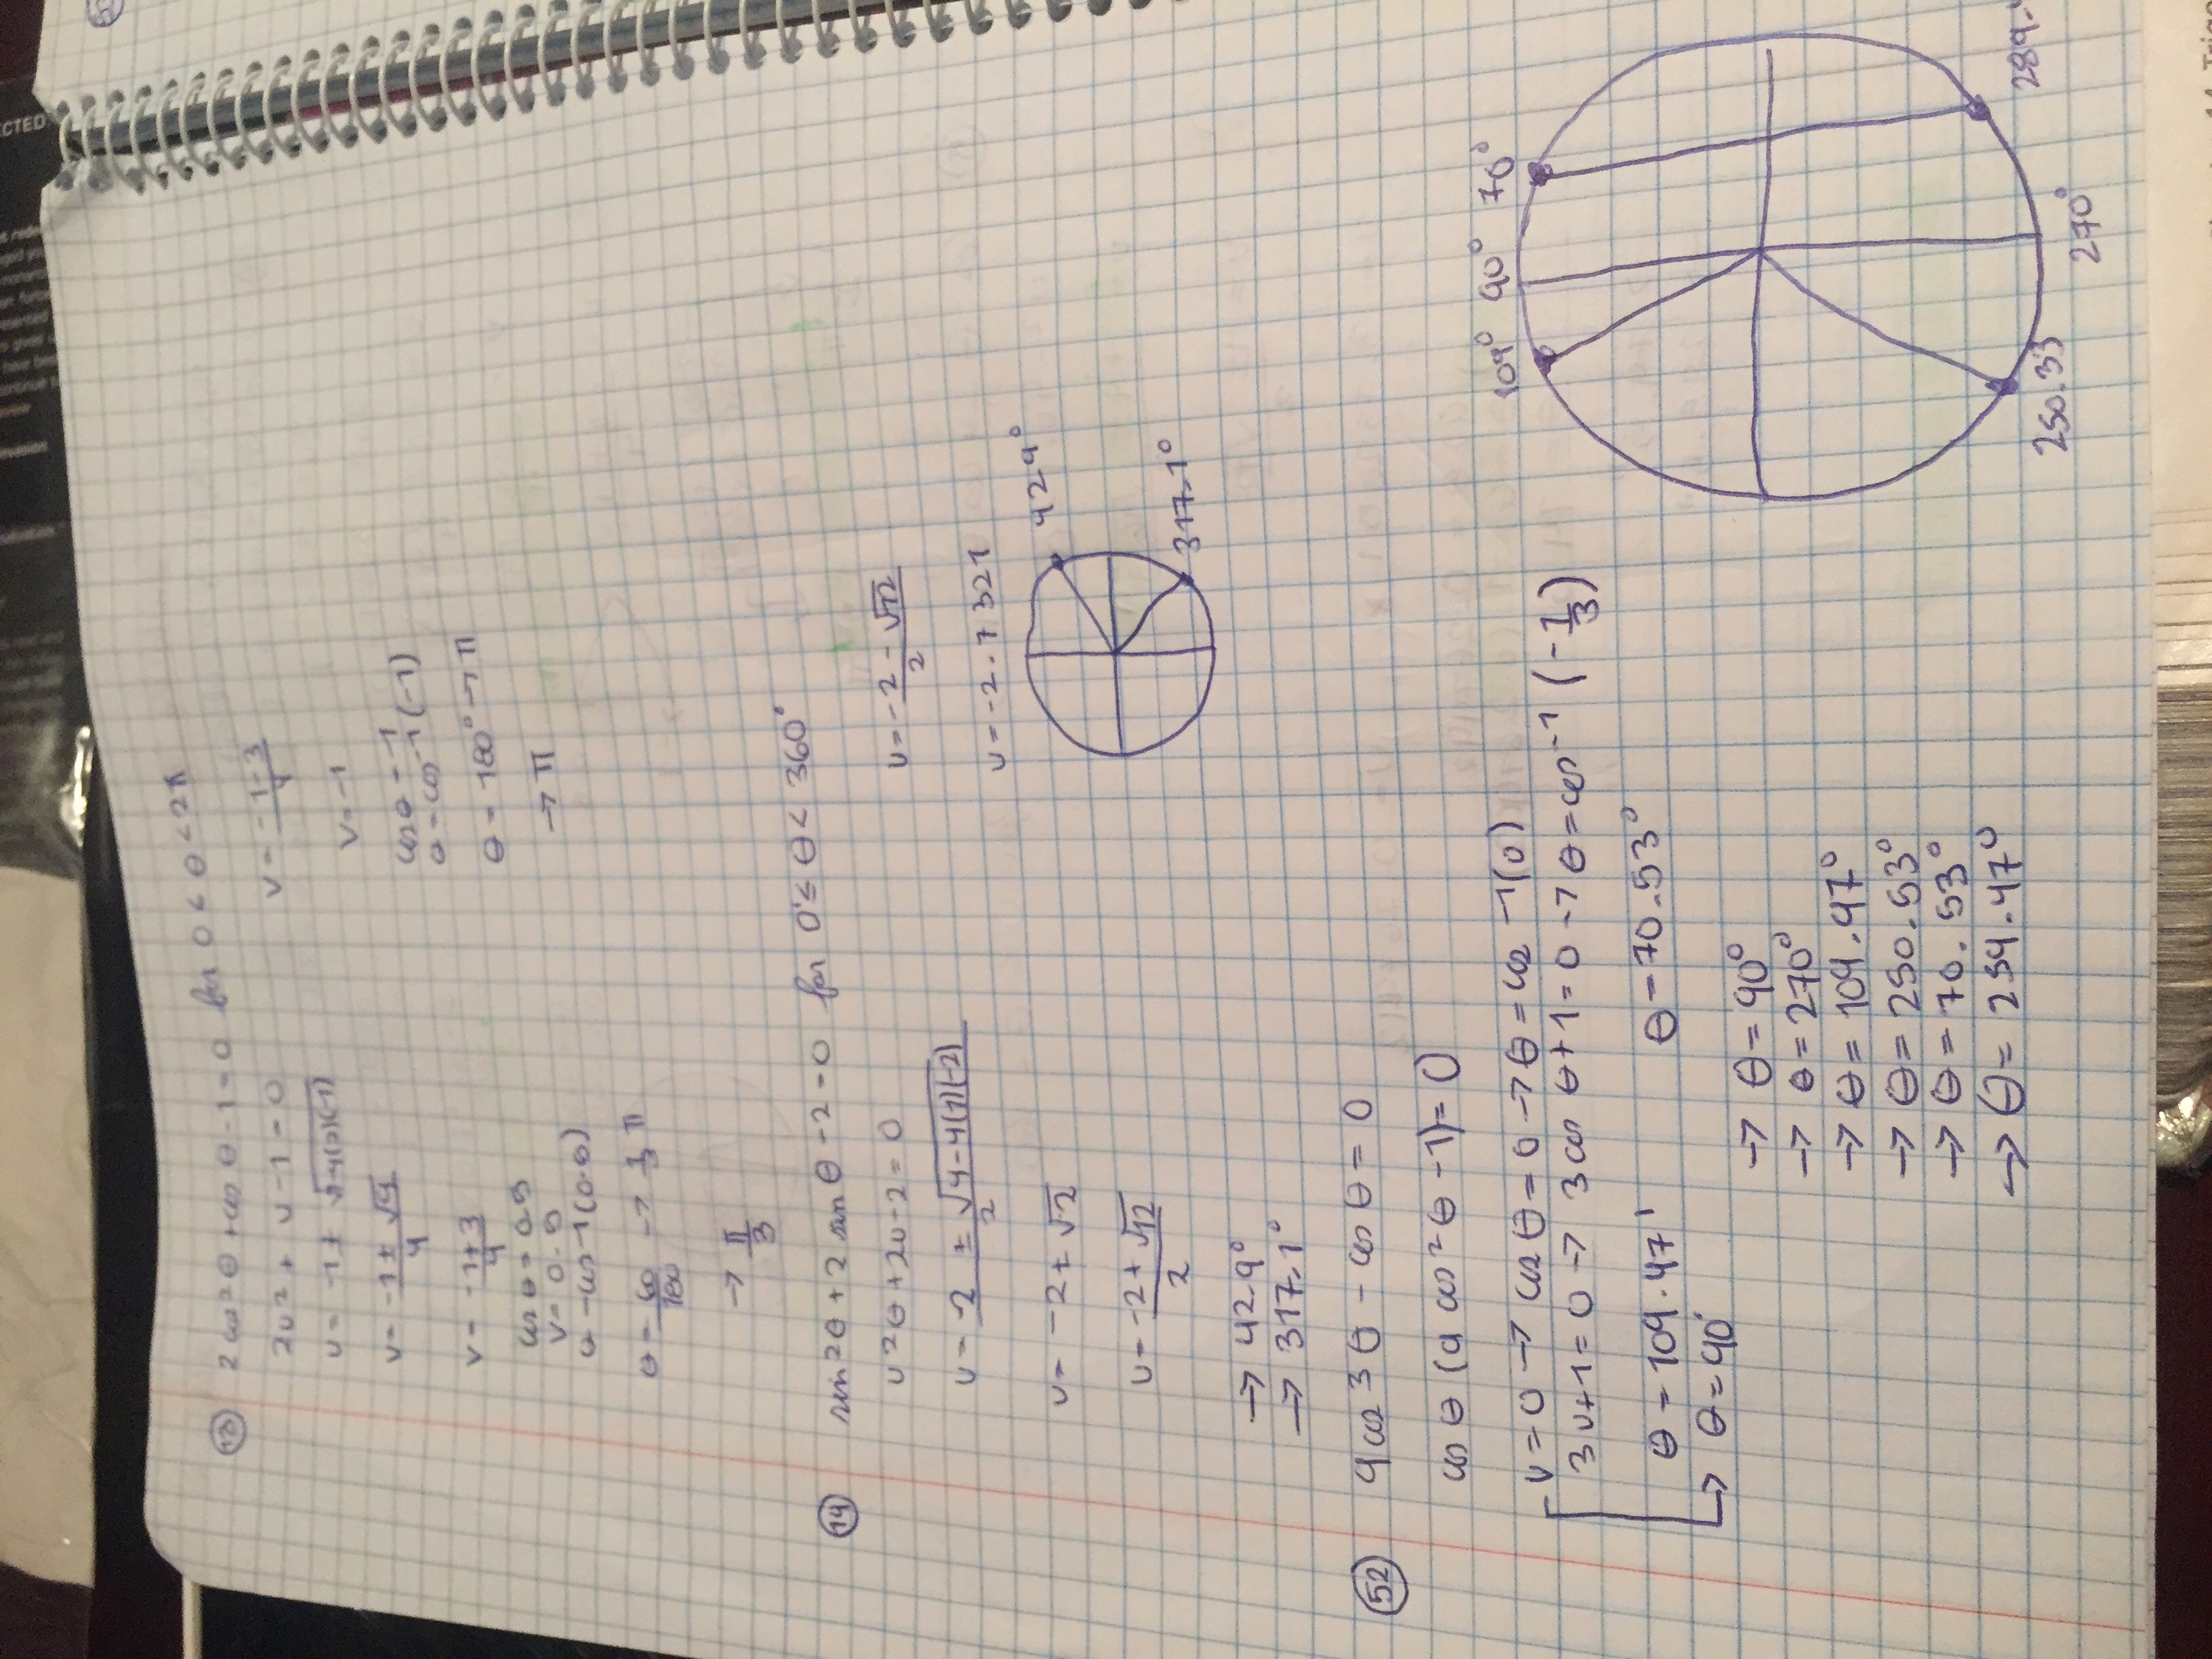 13 2 cos²θ + cos θ - 1 = 0 for 0 < θ < 2π
2u² + u - 1 = 0
u = -1 ± √-4(1)(-1)
v = -1 ± √9 / 4
v = -1+3 / 4
cos θ = 0.5
v = 0.5
θ = cos-1(0.5)
θ = 60/180 → 1/3 π
→ π/3
v = -1-3 / 4
v = -1
cos θ = -1
θ = cos-1(-1)
θ = 180° → π
→ π
14 sin²θ + 2 sin θ - 2 = 0 for 0° ≤ θ < 360°
u²θ + 2u - 2 = 0
u = -2 ± √4-4(1)(-2) / 2
u = -2 ± √12
u = -2 + √12 / 2
→ 42.9°
→ 317.1°
u = -2 - √12 / 2
u = -2.7321
42.9°
317.1°
52 4 cos 3θ - cos θ = 0
cos θ (9 cos²θ - 1) = 0
v = 0 → cos θ = 0 → θ = cos -1(0)
3v+1 = 0 → 3 cos θ + 1 = 0 → θ = cos-1 (-1/3)
θ = 109.47'
θ = 70.53°
→ θ = 90'
→ θ = 90°
→ θ = 270°
→ θ = 109.47°
→ θ = 250.53°
→ θ = 70.53°
→ θ = 254.47°
109° 90° 70°
250.53 270° 289.
CTED